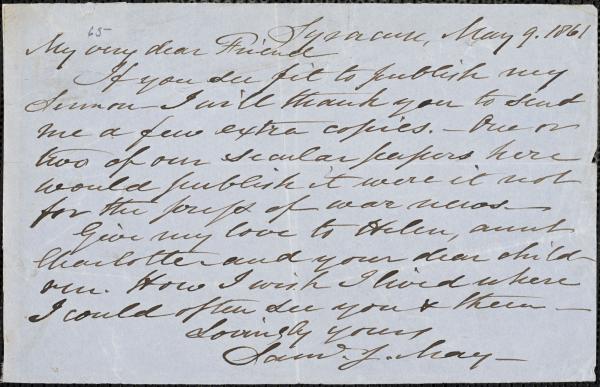 Syracuse, May 9. 1861
65
My very dear Friend
If you see fit to publish my
Sermon I will thank you to send
me a few extra copies. - One or
two of our secular papers here
would publish it were it not
for the press of war news -
Give my love to Helen, aunt
Charlotte and your dear child-
ren. How I wish I lived where
I could often see you & them -
Lovingly yours
Saml. J. May -